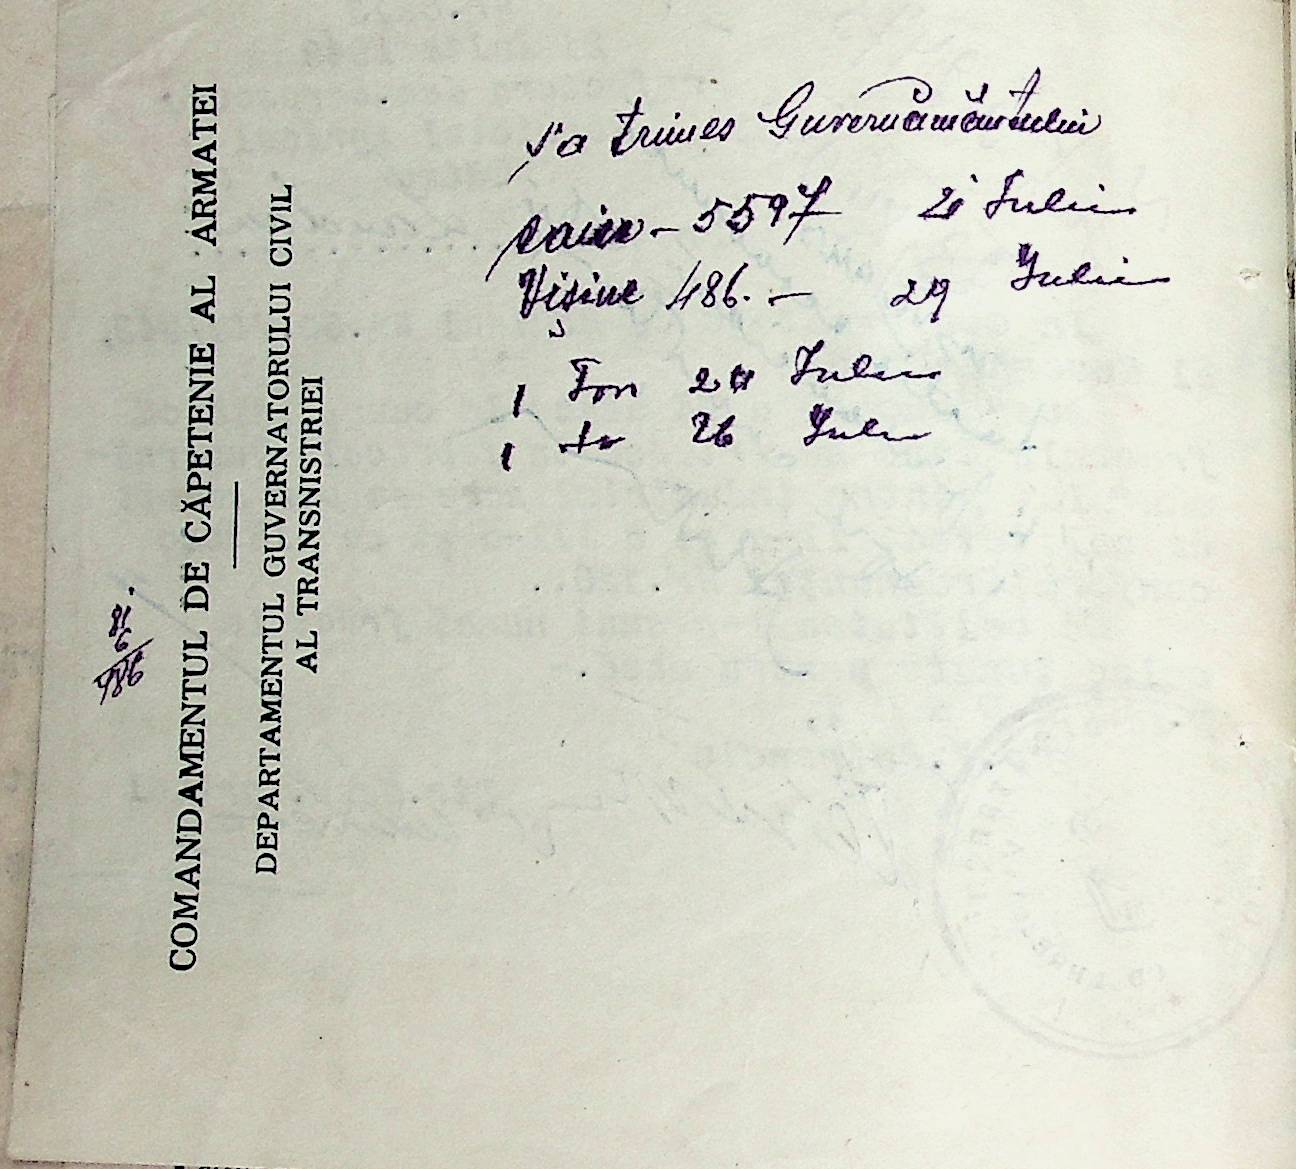 COMANDAMENTUL DE CĂPETENIE AL ARMATEI
DEPARTAMENTUL GUVERNATORULUI CIVIL
AL TRANSNISTRIEI
S'a trimes Guvernământului
caise - 5597 Iulie
Vișine 486. - 29 Iulie
1 Ton Iulie
1 to 26 Iulie
81
6
486